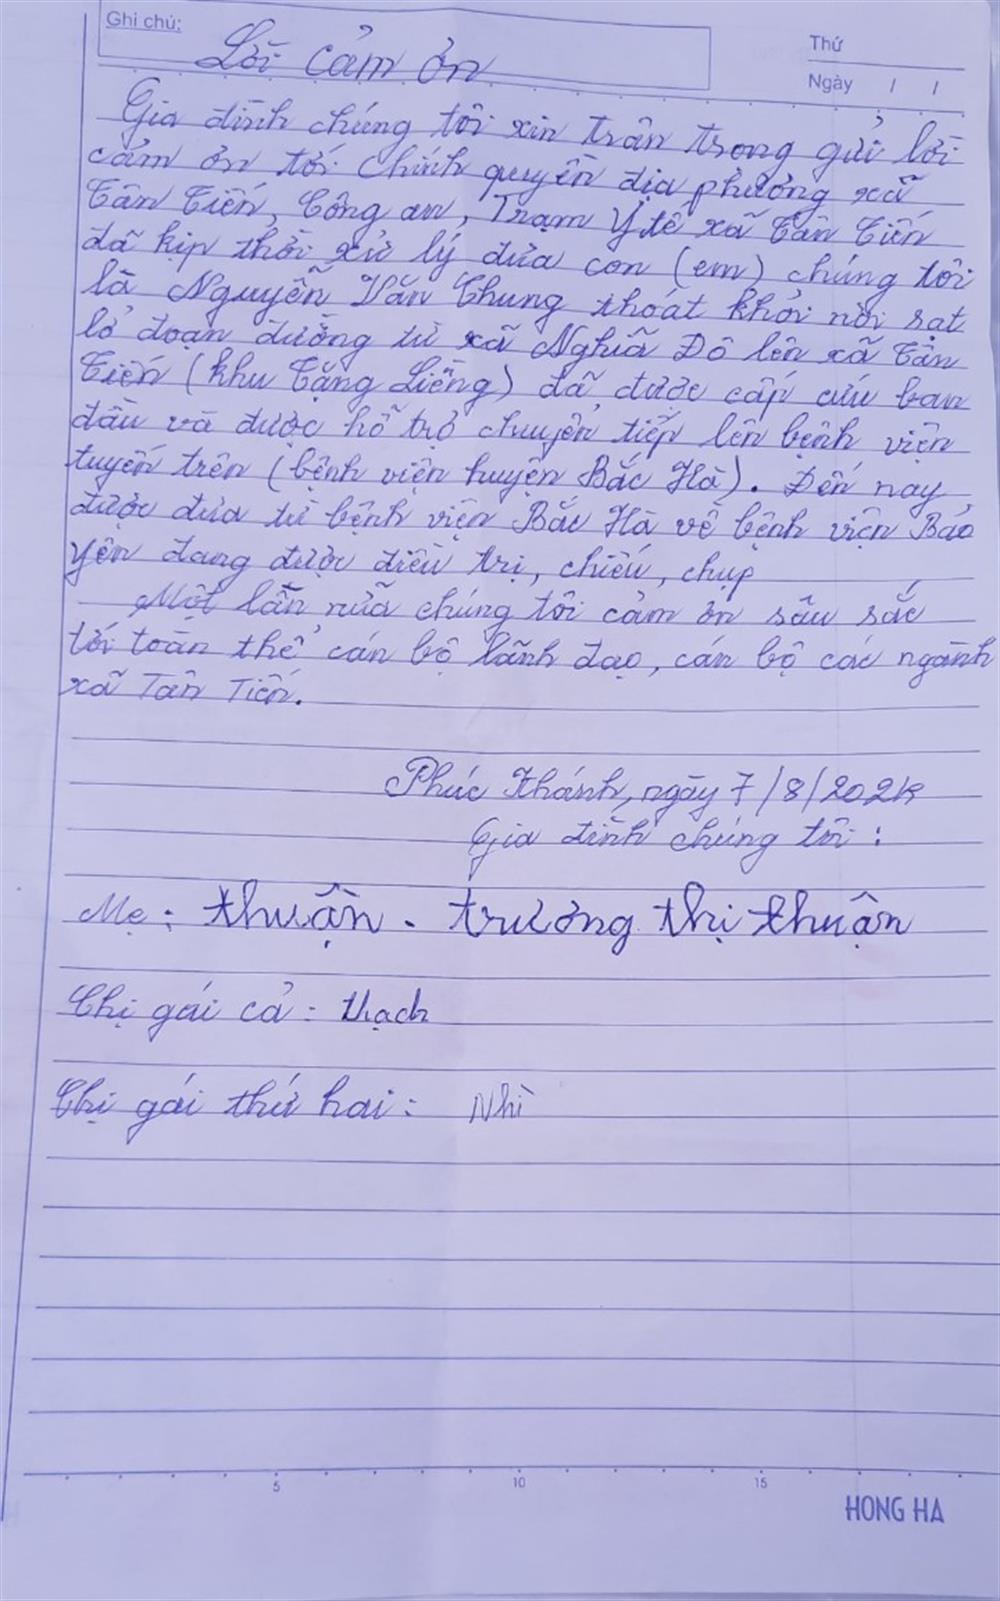 Ghi chú:
Thứ
Ngày / /
Lời cảm ơn
Gia đình chúng tôi xin trân trọng gửi lời
cảm ơn tới chính quyền địa phương xã
Tân Tiến, Công an, Trạm Y tế xã Tân Tiến
đã kịp thời xử lý đưa con (em) chúng tôi
là Nguyễn Văn Chung thoát khỏi nơi sạt
lở đoạn đường từ xã Nghĩa Đô lên xã Tân
Tiến (khu Tặng Liềng) đã được cấp cứu ban
đầu và được hỗ trợ chuyển tiếp lên bệnh viện
tuyến trên (bệnh viện huyện Bắc Hà). Đến nay
được đưa từ bệnh viện Bắc Hà về bệnh viện Bảo
Yên đang được điều trị, chiếu, chụp
Một lần nữa chúng tôi cảm ơn sâu sắc
tới toàn thể cán bộ lãnh đạo, cán bộ các ngành
xã Tân Tiến.
Phúc Khánh, ngày 7/8/202
Gia đình chúng tôi:
Mẹ: thuận. trương thị thuận
Chị gái cả: Mạch
Chị gái thứ hai: Nhì
5 10 15
HONG HA